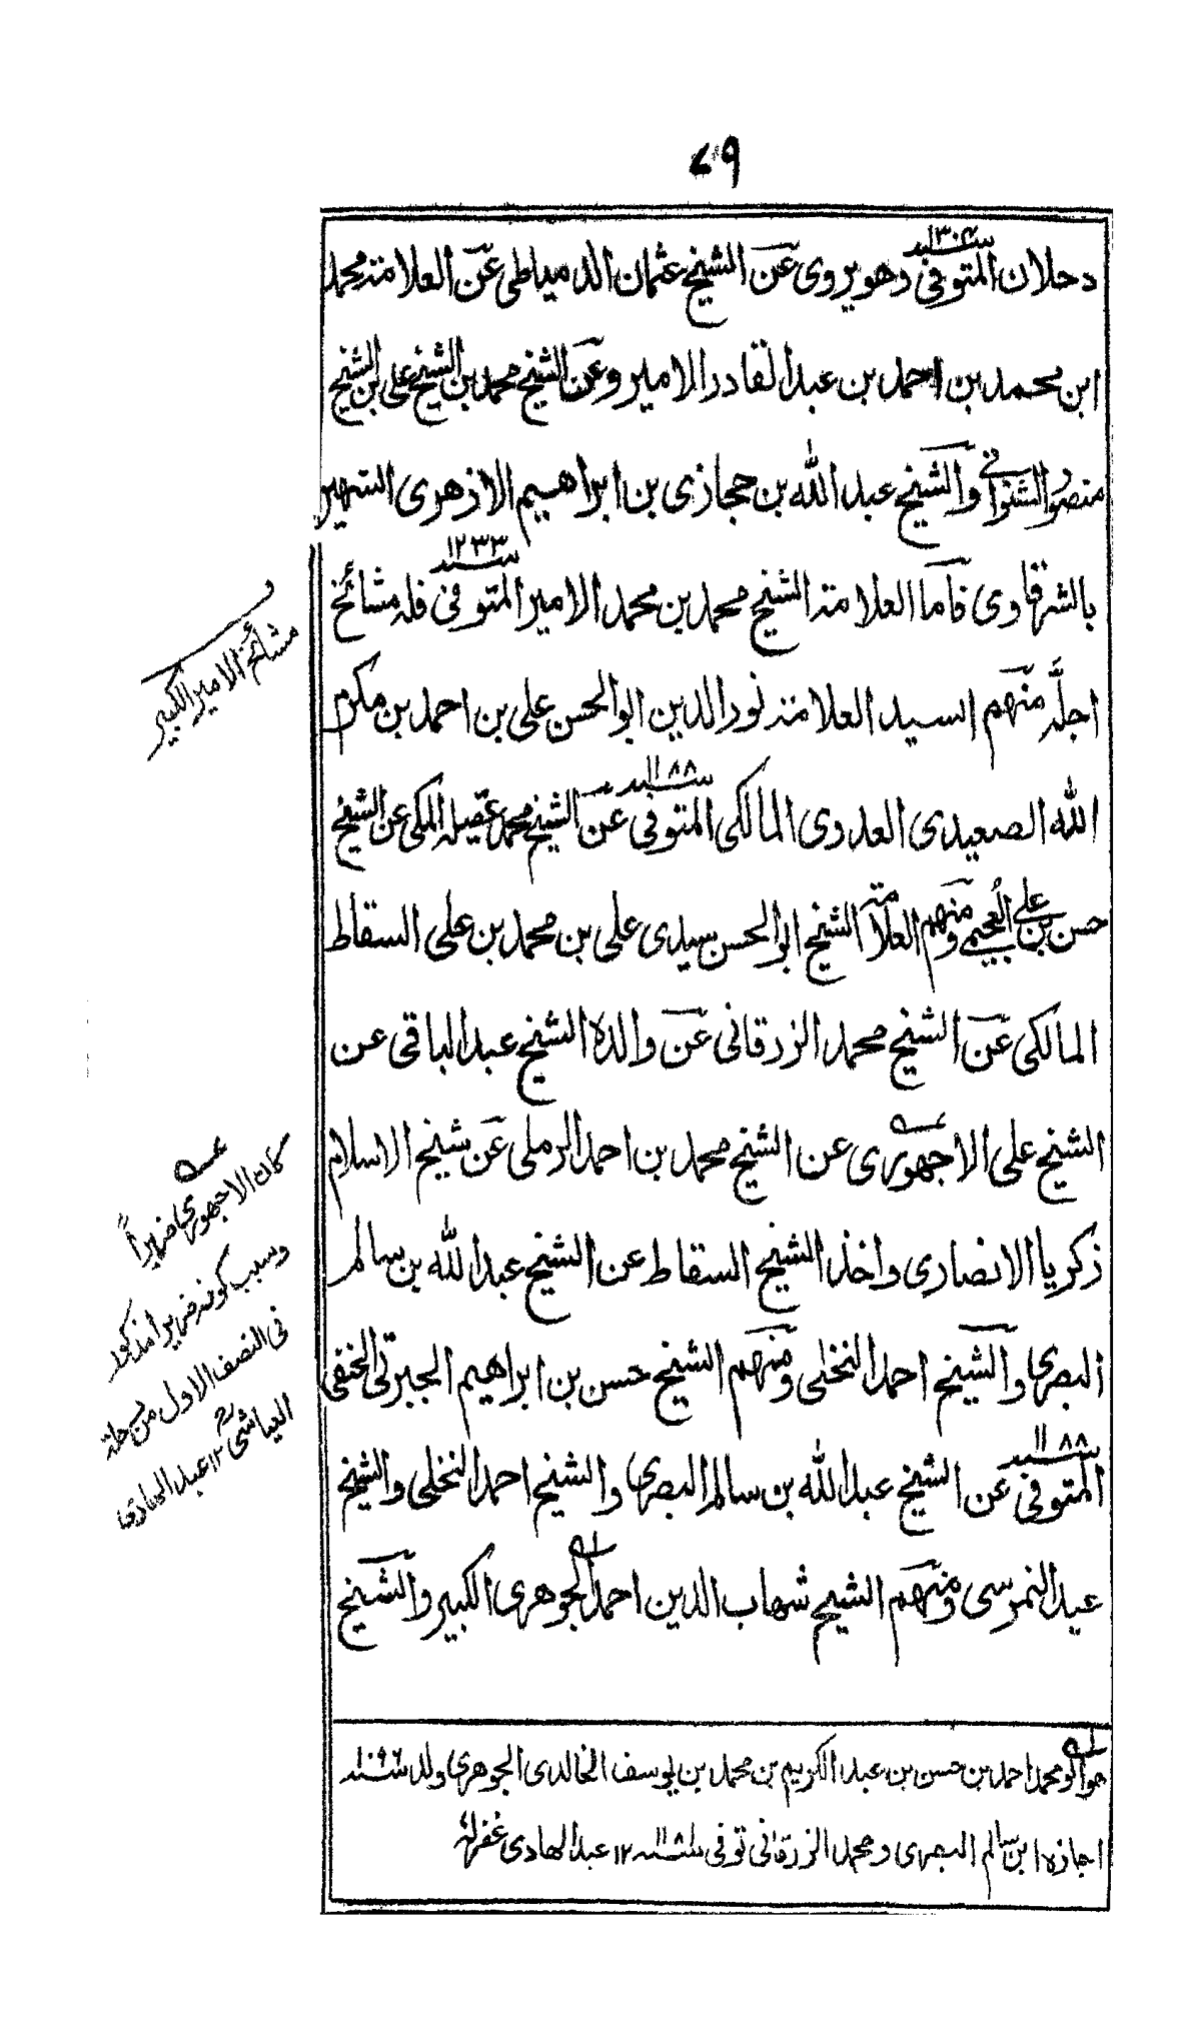 ٤٩
دحلان المتوفى سنة ١٣٠٤ وهو يروى عن الشيخ عثمان الدمياطى عن العلامة محمد
ابن محمد بن احمد بن عبد القادر الامير وعن الشيخ محمد بن الشيخ على بن الشيخ
منصور الشنوانى والشيخ عبد الله بن حجازى بن ابراهيم الازهرى الشهير
بالشرقاوى فاما العلامة الشيخ محمد بن محمد الامير المتوفى سنة ١٢٣٣ فله مشائخ
اجلّه منهم السيد العلامة نور الدين ابو الحسن على بن احمد بن مكرم
الله الصعيدى العدوى المالكى المتوفى سنة ١١٨٨ عن الشيخ محمد عقيله المكى عن الشيخ
حسن بن على العُجيمى ومنهم العلامة الشيخ ابو الحسن سيدى على بن محمد بن على السقاط
المالكى عن الشيخ محمد الزرقانى عن والده الشيخ عبد الباقى عن
الشيخ على الاجهورى عن الشيخ محمد بن احمد الرملى عن شيخ الاسلام
زكريا الانصارى واخذ الشيخ السقاط عن الشيخ عبد الله بن سالم
البصرى والشيخ احمد النخلى ومنهم الشيخ حسن بن ابراهيم الجبرتى الحنفى
المتوفى سنة ١١٨٨ عن الشيخ عبد الله بن سالم البصرى والشيخ احمد النخلى والشيخ
عيد النمرسى ومنهم الشيخ شهاب الدين احمد الجوهرى الكبير والشيخ
مشائخ الامير الكبير
عــه
كان الاجهورى ضريراً
وسبب كونه ضريرا مذكور
فى النصف الاول من رحلة
العياشى رح ١٢ عبد الهادى
لــه هو ابو محمد احمد بن حسن بن عبد الكريم بن محمد بن يوسف الخالدى الجوهرى ولد سنة ١٠٩٦
اجازه ابن سالم البصرى ومحمد الزرقانى توفى سنة ١١٨١ ١٢ عبد الهادى غفرله